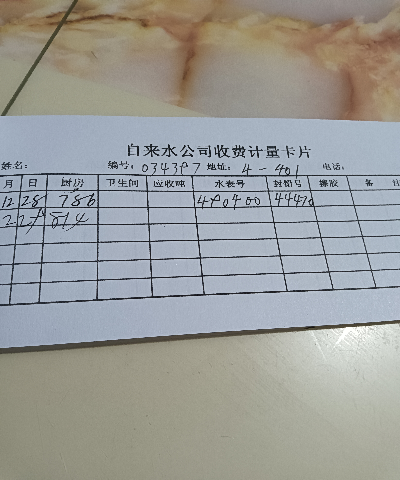 自来水公司收费计量卡片
姓名： 编号：034397 地址：4-401 电话：
月 日 厨房 卫生间 应收吨 水表号 封铅号 搬胶 备
12 28 786 490400
2 27 814